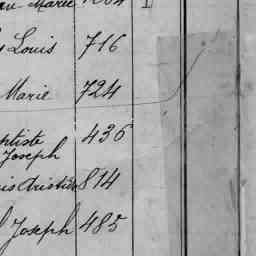 Marie 1004 1
Louis 716
Marie 724
ptiste 436
Joseph
is Aristide 814
Joseph 485